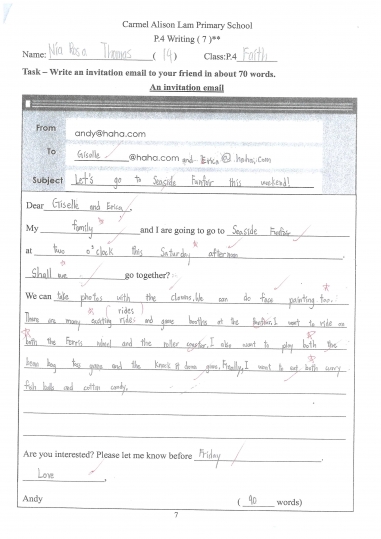 Carmel Alison Lam Primary School
P.4 Writing ( 7 )**
Name: Nia Rosa Thomas ( 19 ) Class:P.4 Faith
Task – Write an invitation email to your friend in about 70 words.
An invitation email
From andy@haha.com
To Giselle @haha.com and Erica @haha.com
Subject Let's go to Seaside Funfair this weekend!
Dear Giselle and Erica,
My family and I are going to go to Seaside Funfair
at two o'clock this Saturday afternoon.
Shall we go together?
We can take photos with the clowns. We can do face painting too.
( rides )
There are many exciting rides and game booths at the funfair. I want to ride on
both the Ferris wheel and the roller coaster. I also want to play both the
bean bag toss game and the knock it down game. Finally, I want to eat both curry
fish balls and cotton candy.
Are you interested? Please let me know before Friday.
Love,
Andy ( 90 words)
7